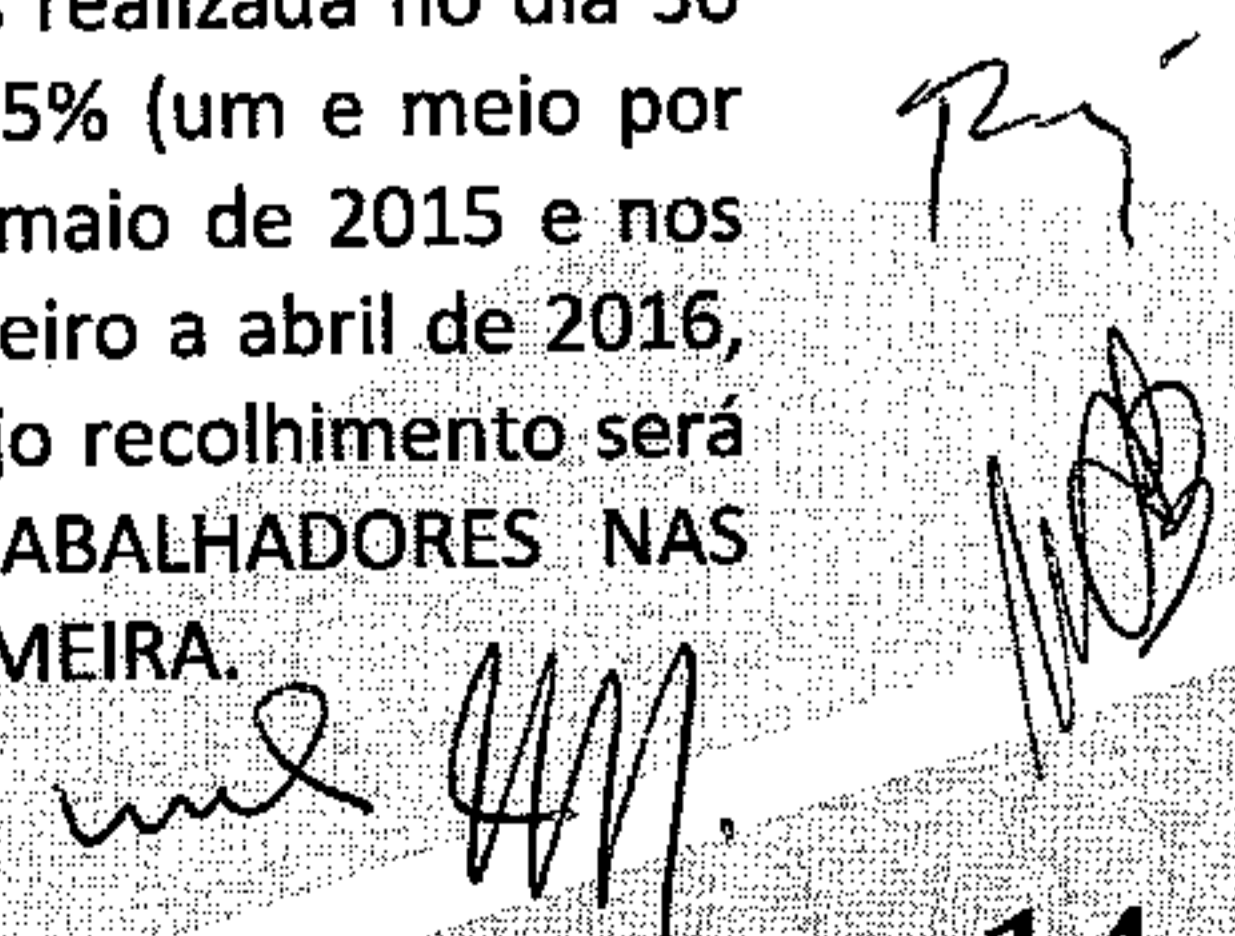 realizada no dia 30
5% (um e meio por
maio de 2015 e nos
eiro a abril de 2016,
jo recolhimento será
ABALHADORES NAS
MEIRA.